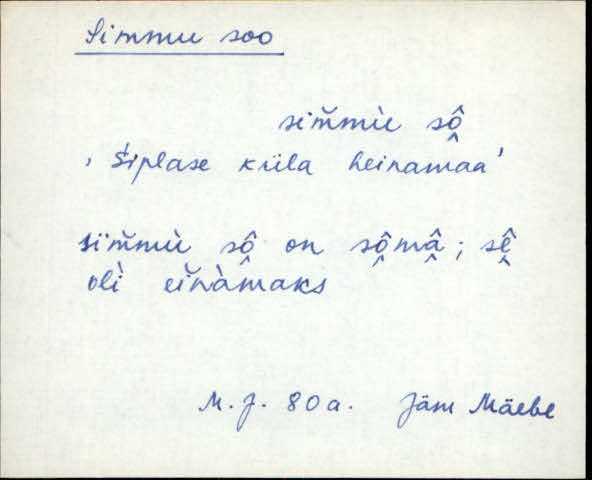 Simmu soo
sim̆mù sô̭
' Siplase küla heinamaa '
sim̆mù sô̭ on sô̭mâ̭ ; sḙ̂
olì eĭnàmaks
M. J. 80 a. Jäm Mäebe